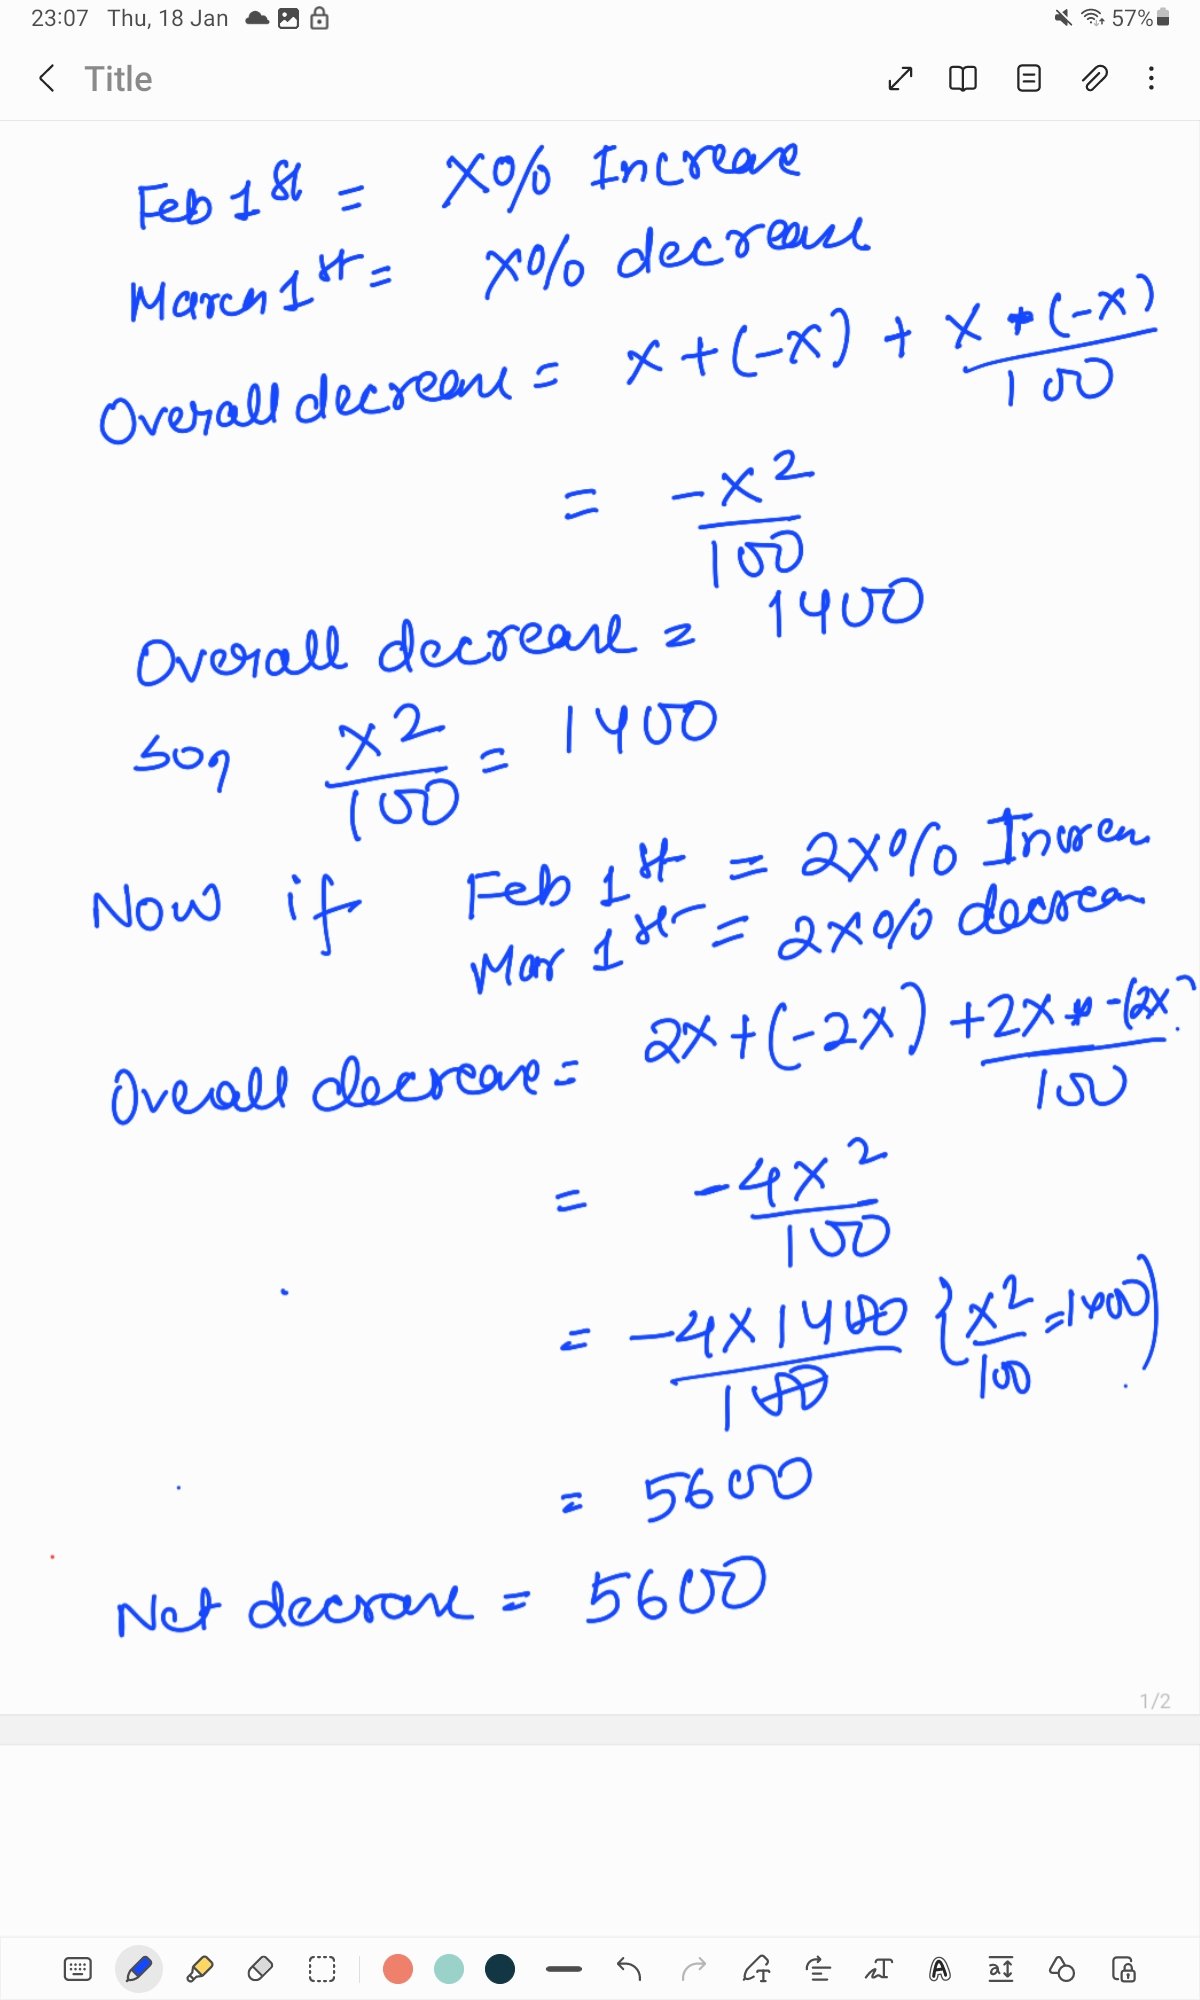 23:07 Thu, 18 Jan 57%
Title
Feb 1st = X% Increase
March 1st = X% decrease
Overall decrease = x + (-x) + x * (-x) / 100
= -x² / 100
Overall decrease = 1400
so, x² / 100 = 1400
Now if Feb 1st = 2x%
Mar 1st = 2x%
Overall decrease = 2x + (-2x) + 2x * -(2x) / 100
= -4x² / 100
= -4 x 1400 / 100 { x² / 100 = 1400 )
= 5600
Net = 5600
1/2